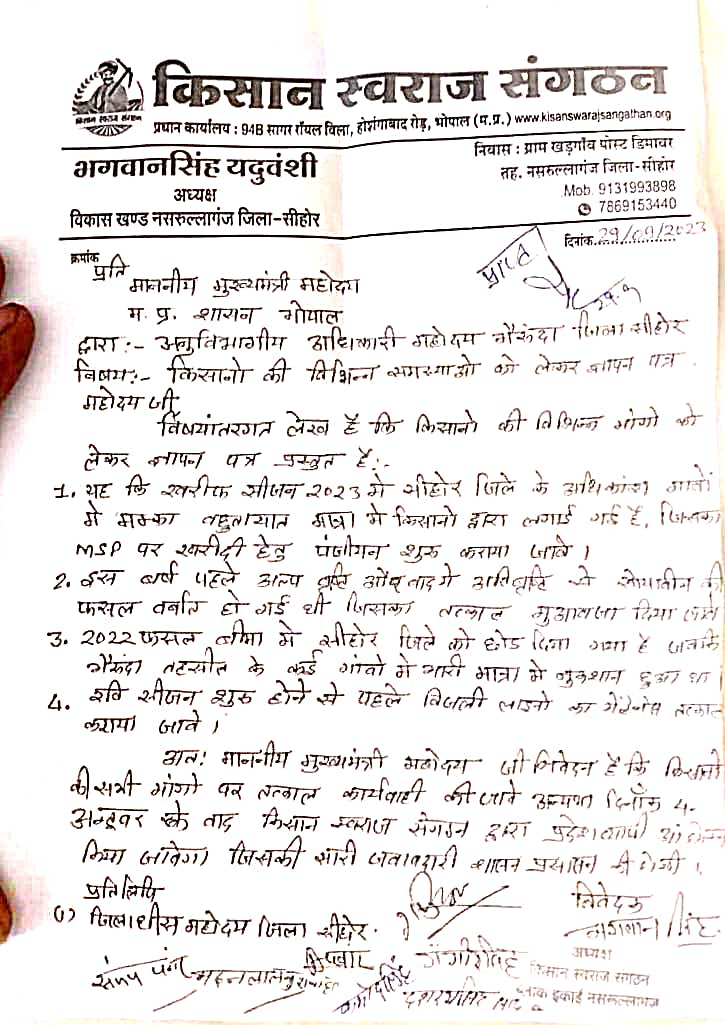 किसान स्वराज संगठन
किसान स्वराज संगठन
प्रधान कार्यालय : 94B सागर रॉयल विला, होशंगाबाद रोड़, भोपाल (म.प्र.) www.kisanswarajsangathan.org
भगवानसिंह यदुवंशी
अध्यक्ष
विकास खण्ड नसरुल्लागंज जिला-सीहोर
निवास : ग्राम खड़गाँव पोस्ट डिमावर
तह. नसरुल्लागंज जिला-सीहोर
Mob. 9131993898
7869153440
क्रमांक
दिनांक 29/09/2023
प्रति
माननीय मुख्यमंत्री महोदय
म. प्र. शासन भोपाल
द्वारा:- अनुविभागीय अधिकारी महोदय भैरूंदा जिला सीहोर
विषय:- किसानो की विभिन्न समस्याओ को लेकर ज्ञापन पत्र.
महोदय जी,
विषयांतरगत लेख है कि किसानो की विभिन्न मांगो को
लेकर ज्ञापन पत्र प्रस्तुत है:-
1. यह कि खरीफ सीजन 2023 मे सीहोर जिले के अधिकांश गावों
मे मक्का बहुतायात मात्रा मे किसानो द्वारा लगाई गई है, जिसका
MSP पर खरीदी हेतु पंजीयन शुरू कराया जावे।
2. इस बर्ष पहले अल्प वृष्टि और बाद मे अतिवृष्टि से सोयाबीन की
फसल बर्बाद हो गई थी जिसका तत्काल मुआवजा दिया जावे
3. 2022 फसल बीमा मे सीहोर जिले को छोड दिया गया है जबकि
भैरूंदा तहसील के कई गांवो मे भारी मात्रा मे नुकशान हुआ था।
4. रवि सीजन शुरू होने से पहले बिजली लाइनो का मेंटेनेंस तत्काल
कराया जावे।
अतः माननीय मुख्यमंत्री महोदय जी निवेदन है कि किसानो
की सभी मांगो पर तत्काल कार्यवाही की जावे अन्यथा दिनाँक 4
अक्टूबर के बाद किसान स्वराज संगठन द्वारा प्रदेशव्यापी आंदोलन
किया जावेगा जिसकी सारी जवाबदारी शासन प्रशासन की होगी।
प्रतिलिपि
(1) जिलाधीस महोदय जिला सीहोर.
निवेदक
भगवान सिंह
अध्यक्ष
किसान स्वराज संगठन
ब्लाक इकाई नसरुल्लागंज